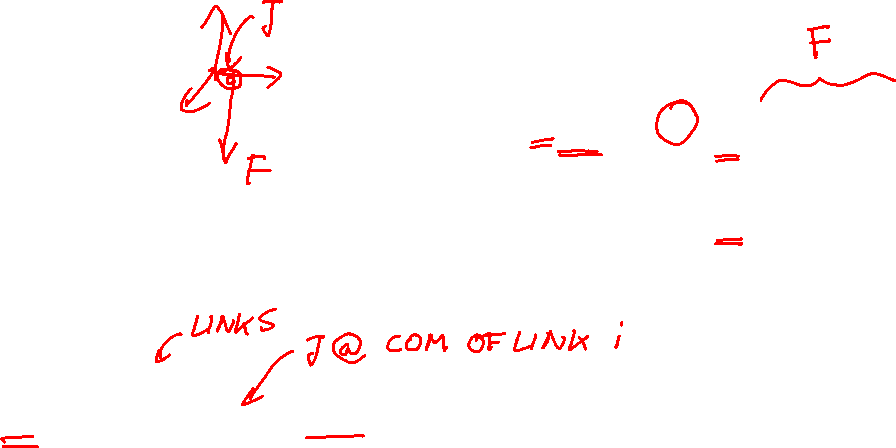 J
F
F
LINKS
J @ COM OF LINK i